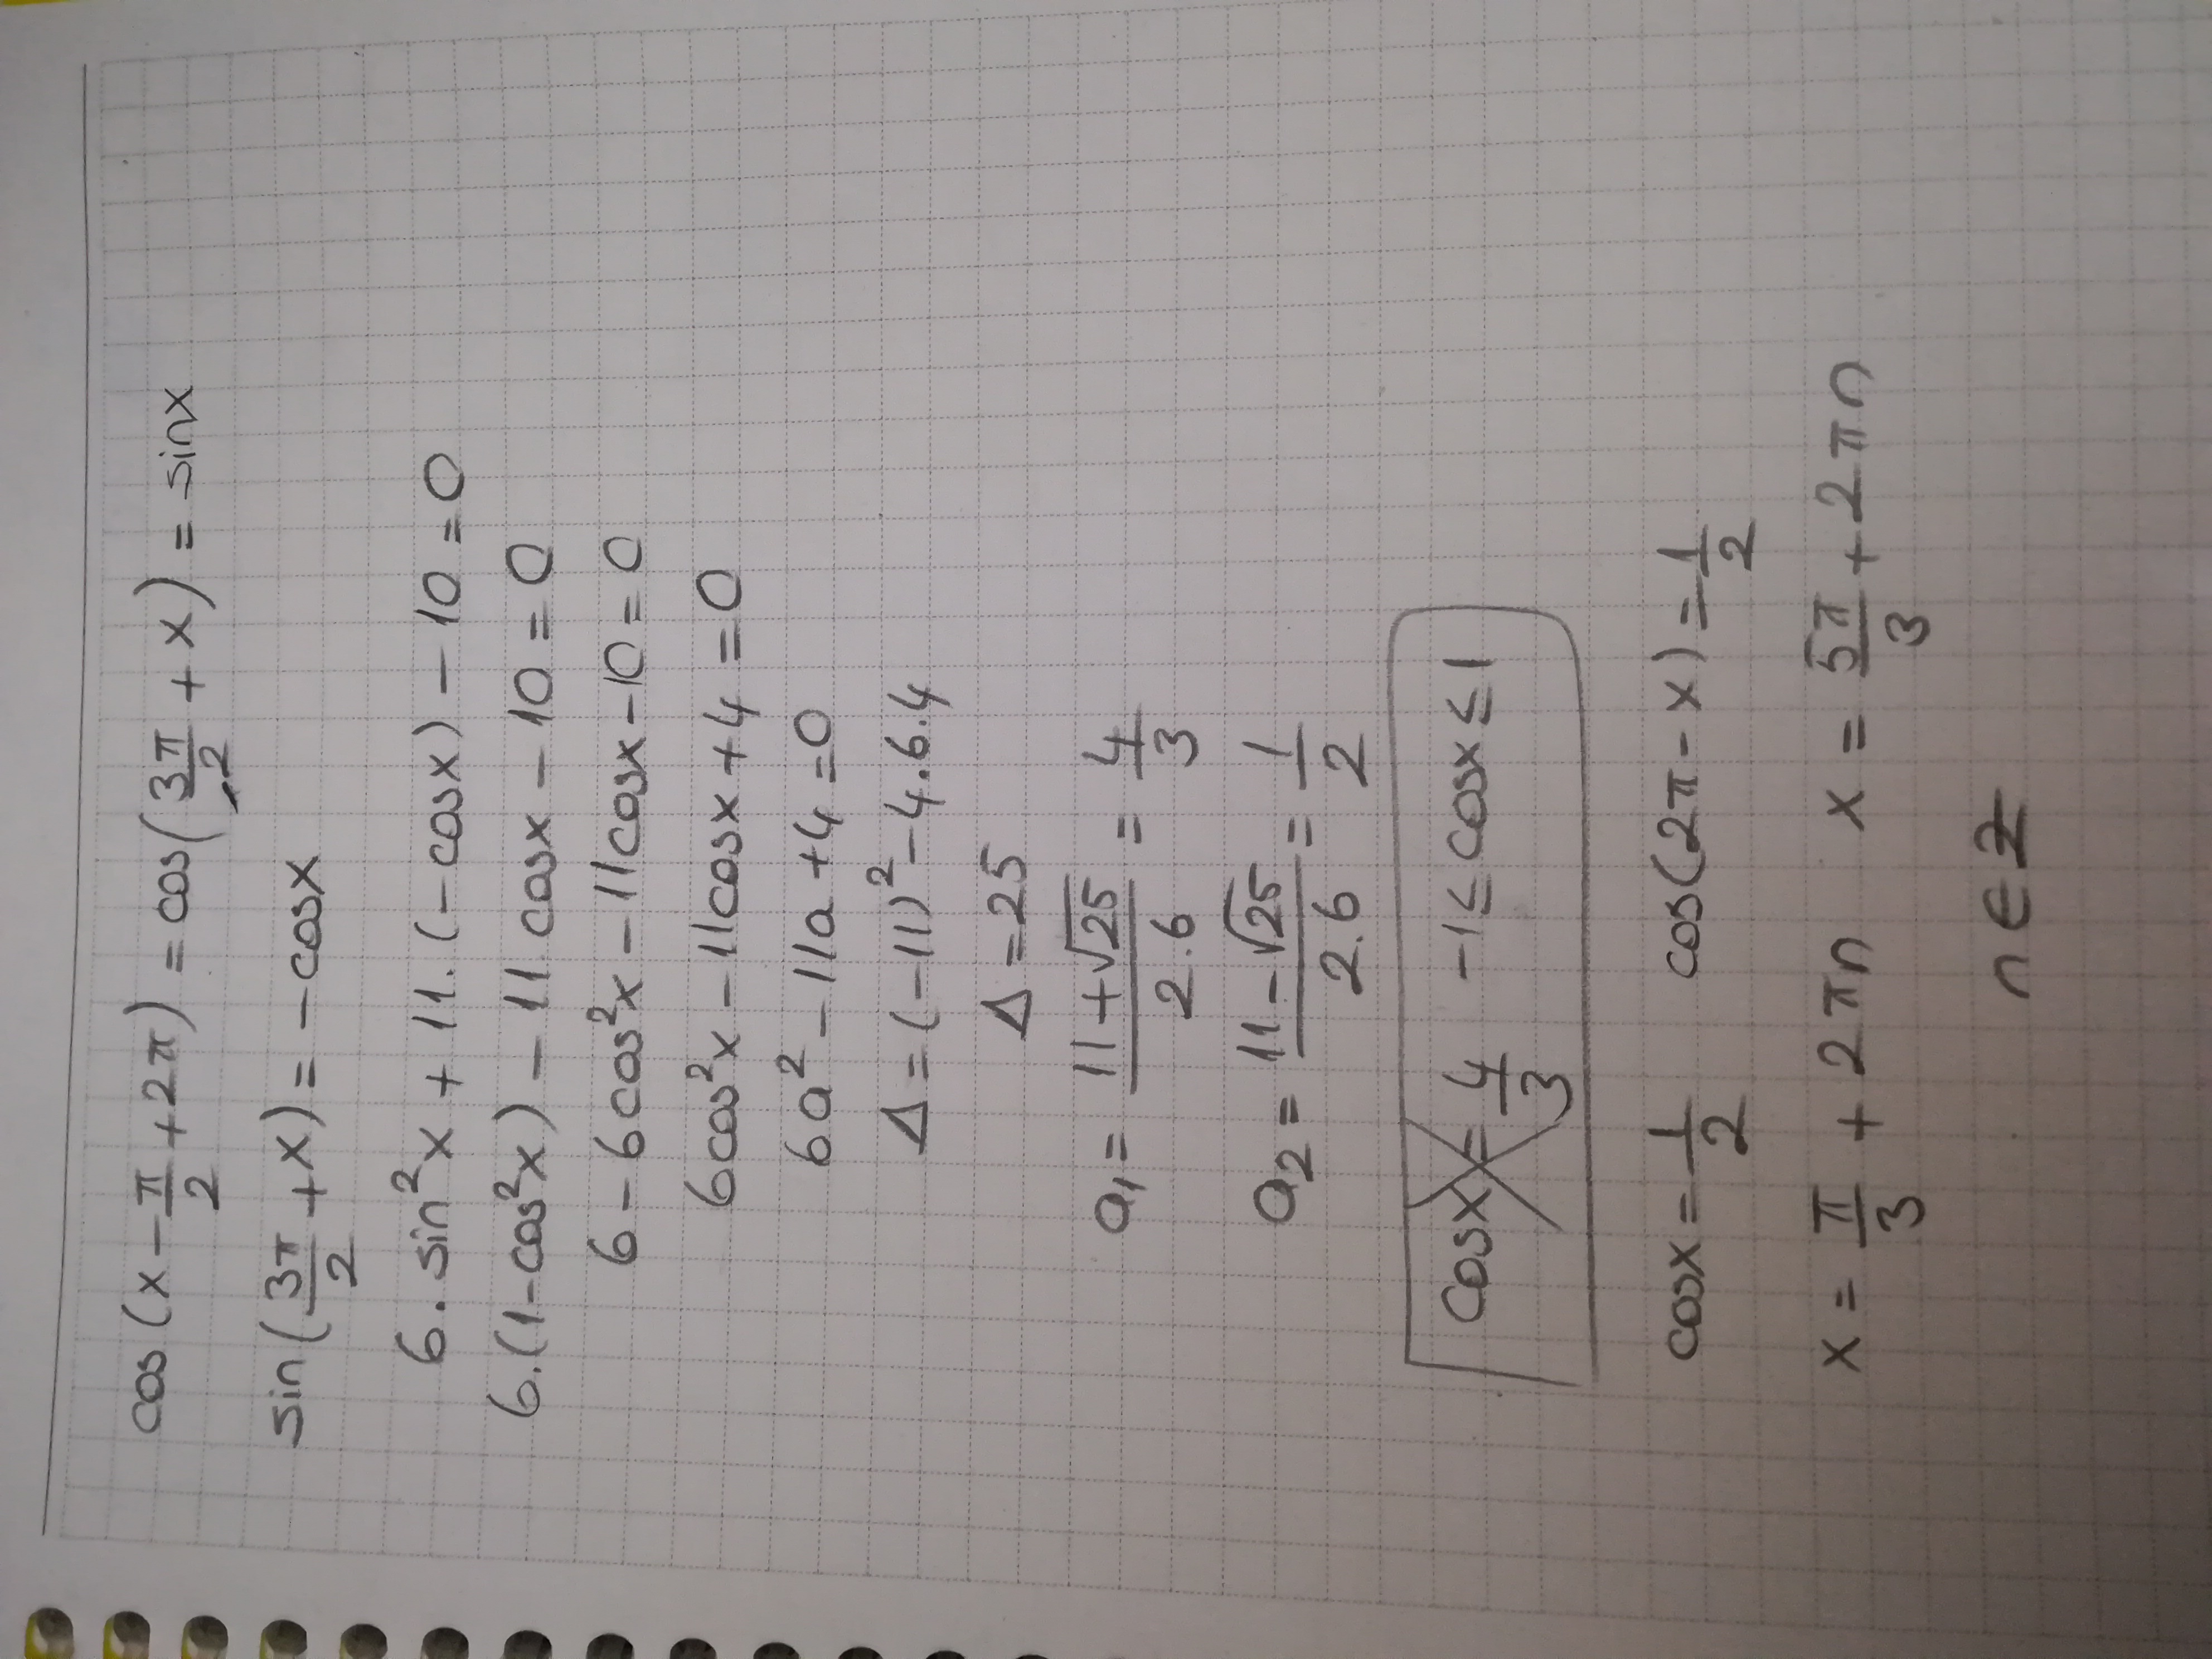 cos(x - π/2 + 2π) = cos(3π/2 + x) = sinx
sin(3π/2 + x) = - cosx
6 . sin²x + 11 . (-cosx) - 10 = 0
6.(1-cos²x) - 11.cosx - 10 = 0
6 - 6cos²x - 11cosx - 10 = 0
6cos²x - 11cosx + 4 = 0
6a² - 11a + 4 = 0
Δ = (-11)² - 4.6.4
Δ = 25
a₁ = (11 + √25)/(2.6) = 4/3
a₂ = (11 - √25)/(2.6) = 1/2
cosx = 4/3 -1 ≤ cosx ≤ 1
cosx = 1/2 cos(2π - x) = 1/2
x = π/3 + 2πn x = 5π/3 + 2πn
n ∈ Z